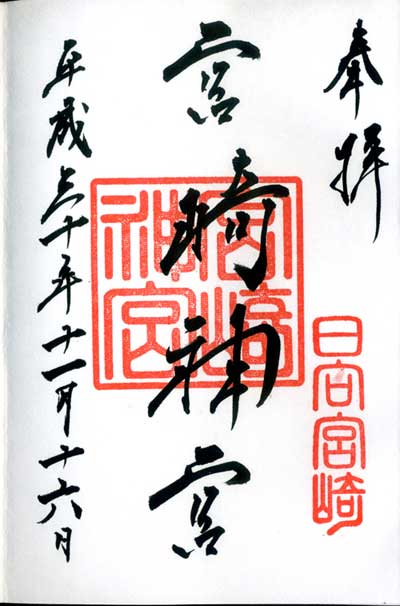 奉拝
日向宮崎
宮崎神宮
宮崎
神宮
平成三十年十一月十六日